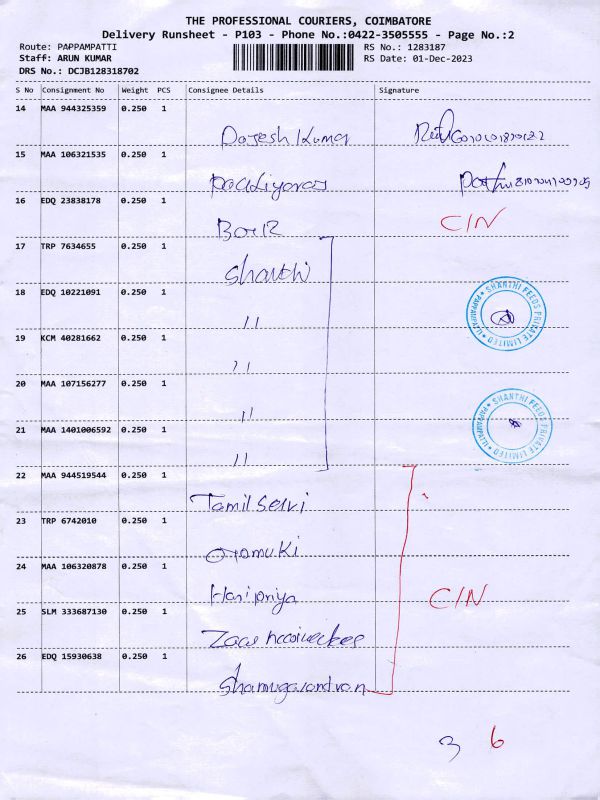 THE PROFESSIONAL COURIERS, COIMBATORE
Delivery Runsheet - P103 - Phone No.:0422-3505555 - Page No.:2
Route: PAPPAMPATTI
RS No.: 1283187
Staff: ARUN KUMAR
RS Date: 01-Dec-2023
DRS No.: DCJB128318702
S No Consignment No Weight PCS Consignee Details Signature
14 MAA 944325359 0.250 1
Rajesh Kumar
15 MAA 106321535 0.250 1
16 EDQ 23838178 0.250 1
C/N
BOB
17 TRP 7634655 0.250 1
Shanthi
18 EDQ 10221091 0.250 1
SHANTHI FEEDS PRIVATE LIMITED
PAPPAMPATTI
11
19 KCM 40281662 0.250 1
11
20 MAA 107156277 0.250 1
11
SHANTHI FEEDS PRIVATE LIMITED
PAPPAMPATTI
21 MAA 1401006592 0.250 1
11
22 MAA 944519544 0.250 1
Tamil Selvi
23 TRP 6742010 0.250 1
24 MAA 106320878 0.250 1
Hari priya
C/N
25 SLM 333687130 0.250 1
26 EDQ 15930638 0.250 1
3 6